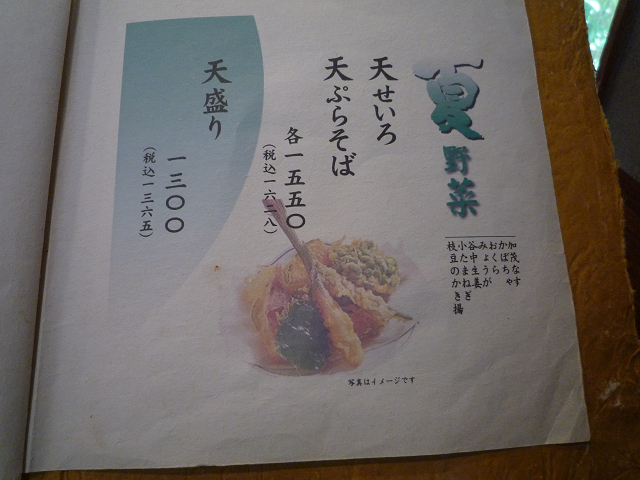 夏野菜
加茂なす
かぼちゃ
おくら
みょうが
谷中生姜
小たまねぎ
枝豆のかき揚
天せいろ
天ぷらそば
各一五五〇
(税込一六二八)
天盛り
一三〇〇
(税込一三六五)
写真はイメージです